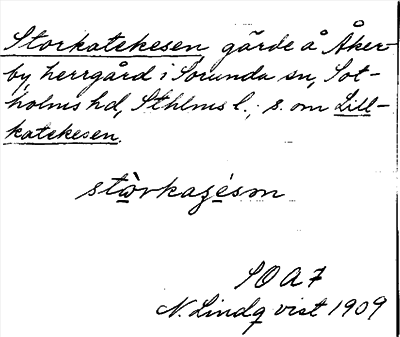 Storkatekesen, gärde å Åker-
by herrgård i Sorunda sn, Sot-
holms hd, Sthlms l.; s. om Lill-
katekesen.
stòrkaʒésm
SOA 7
N. Lindqvist 1909